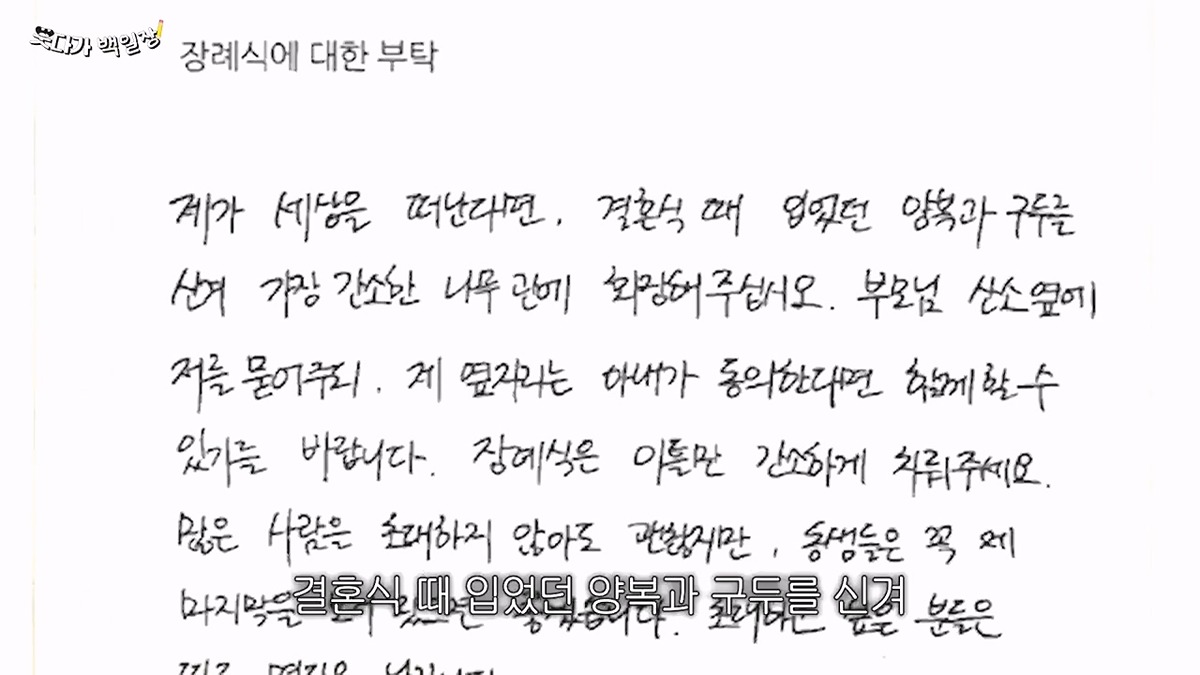 웃다가 백일장
장례식에 대한 부탁
제가 세상을 떠난다면, 결혼식 때 입었던 양복과 구두를
신겨 가장 간소한 나무 관에 화장해 주십시오. 부모님 산소 옆에
저를 묻어주되, 제 옆자리는 아내가 동의한다면 함께 할 수
있기를 바랍니다. 장례식은 이틀만 간소하게 치뤄주세요.
많은 사람을 초대하지 않아도 괜찮지만, 동생들은 꼭 제
마지막을 있으면 좋겠습니다. 초대하고 싶은 분들은
결혼식 때 입었던 양복과 구두를 신겨
따로 명단을